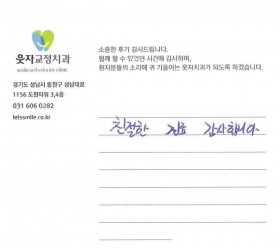 웃자교정치과
경기도 성남시 중원구 성남대로
1156 도원타워 3,4층
031 606 0282
letssmile.co.kr
소중한 후기 감사드립니다.
함께 할 수 있었던 시간에 감사하며,
환자분들의 소리에 귀 기울이는 웃자치과가 되도록 하겠습니다.
친절한 진료 감사합니다.